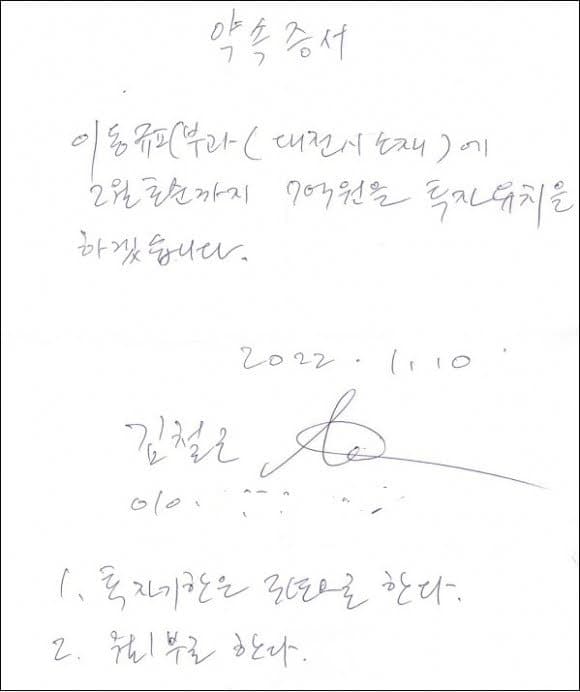 약속증서
이동규피부과(대전시소재)에
2월초순까지 7억원을 투자유치를
하겠습니다.
2022. 1. 10
김철근
010.
1. 투자기한은 으로 한다.
2. 부로 한다.